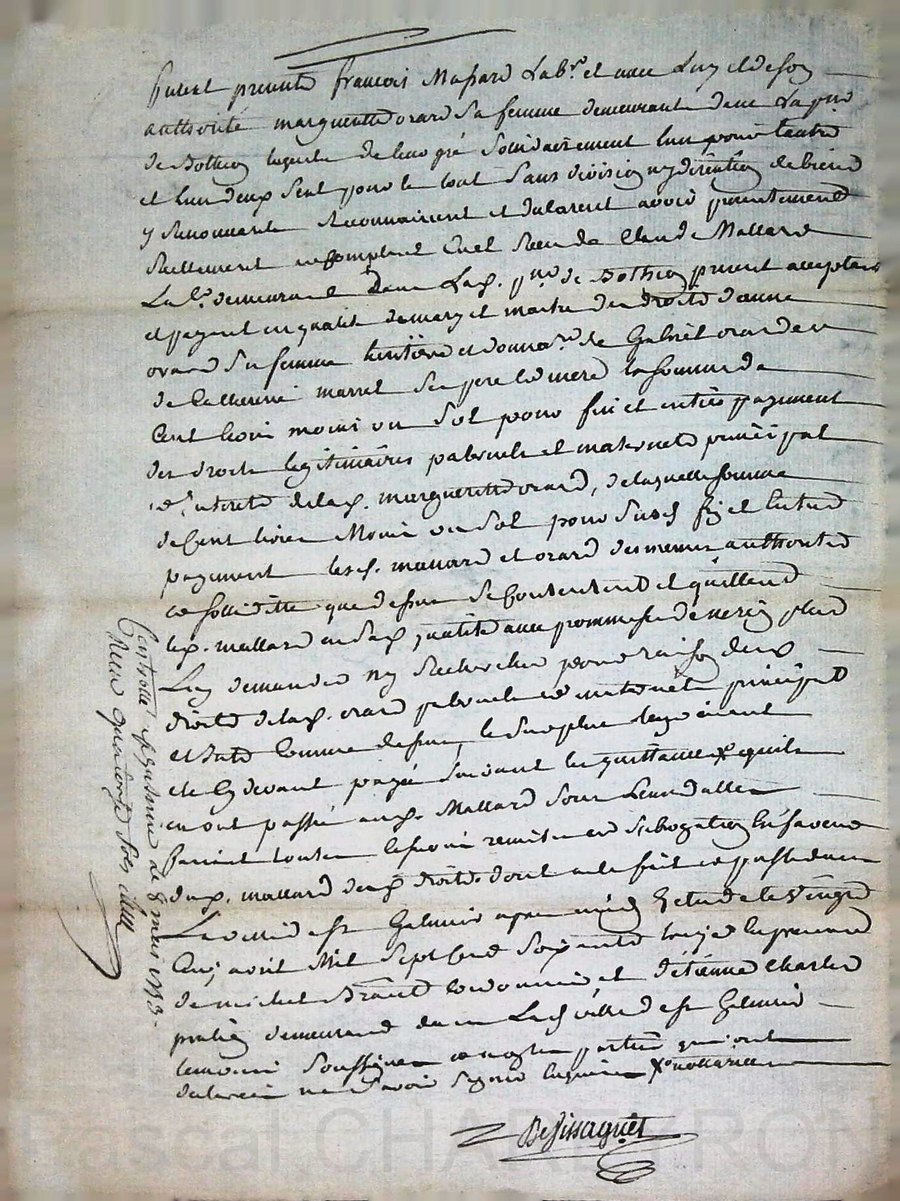 furent presents françois Massard Lab.r et avec Luy et de son
authorité margueritte orard sa femme demeurants dans La p.sse
de Bothéon lesquels de leur gré solidairement l'un pour l'autre
et l'un d'eux seul pour le tout sans division ny discution de biens
y renonceants reconnaissent et declarent avoir presentement
reellement et comptant eu et receu de Claude Mallard
Lab.r demeurant dans Lad. p.sse de Bothéon present acceptant
et payant en qualité de mary et maitre des droits d'anne
orard sa femme heritiere et donnat.re de Gabriel orard et
de Catherine marret ses pere et mere la somme de
Cent livres moins un sol pour fin et entier payement
des droits legitimaires paternels et maternels principal
et interets de lad. margueritte orard, de laquelle somme
de Cent livres Moins un sol pour susd. fin et entier
payement lesd. massard et orard des memes authorité
et solliditté que dessus se Contentent et quittent
led. mallard en sad. qualité avec promesse de ne rien plus
Luy demander ny rechercher pour raison des
droits de lad. orard paternels et maternels principal
et Interets Comme dessus, le surplus ayant
eté Cy devant payé suivant les quittances qu'ils
en ont passé aud. Mallard sous
toutes remises et subrogation En faveur
dud. mallard desd. droits dont acte fait et passé dans
La ville de st Galmier apres midy Etude le vingt
Cinq avril Mil sept cent soixante treize En presence
de michel cordonnier, et d'étienne Charles
praticien demeurants dans Lad. ville de st Galmier
temoins soussignés et non les parties qui ont
declarées ne sçavoir signer enquises
De Sissaguet
Controllé a st galmier le 8 mars 1773
Receu quatorze sols